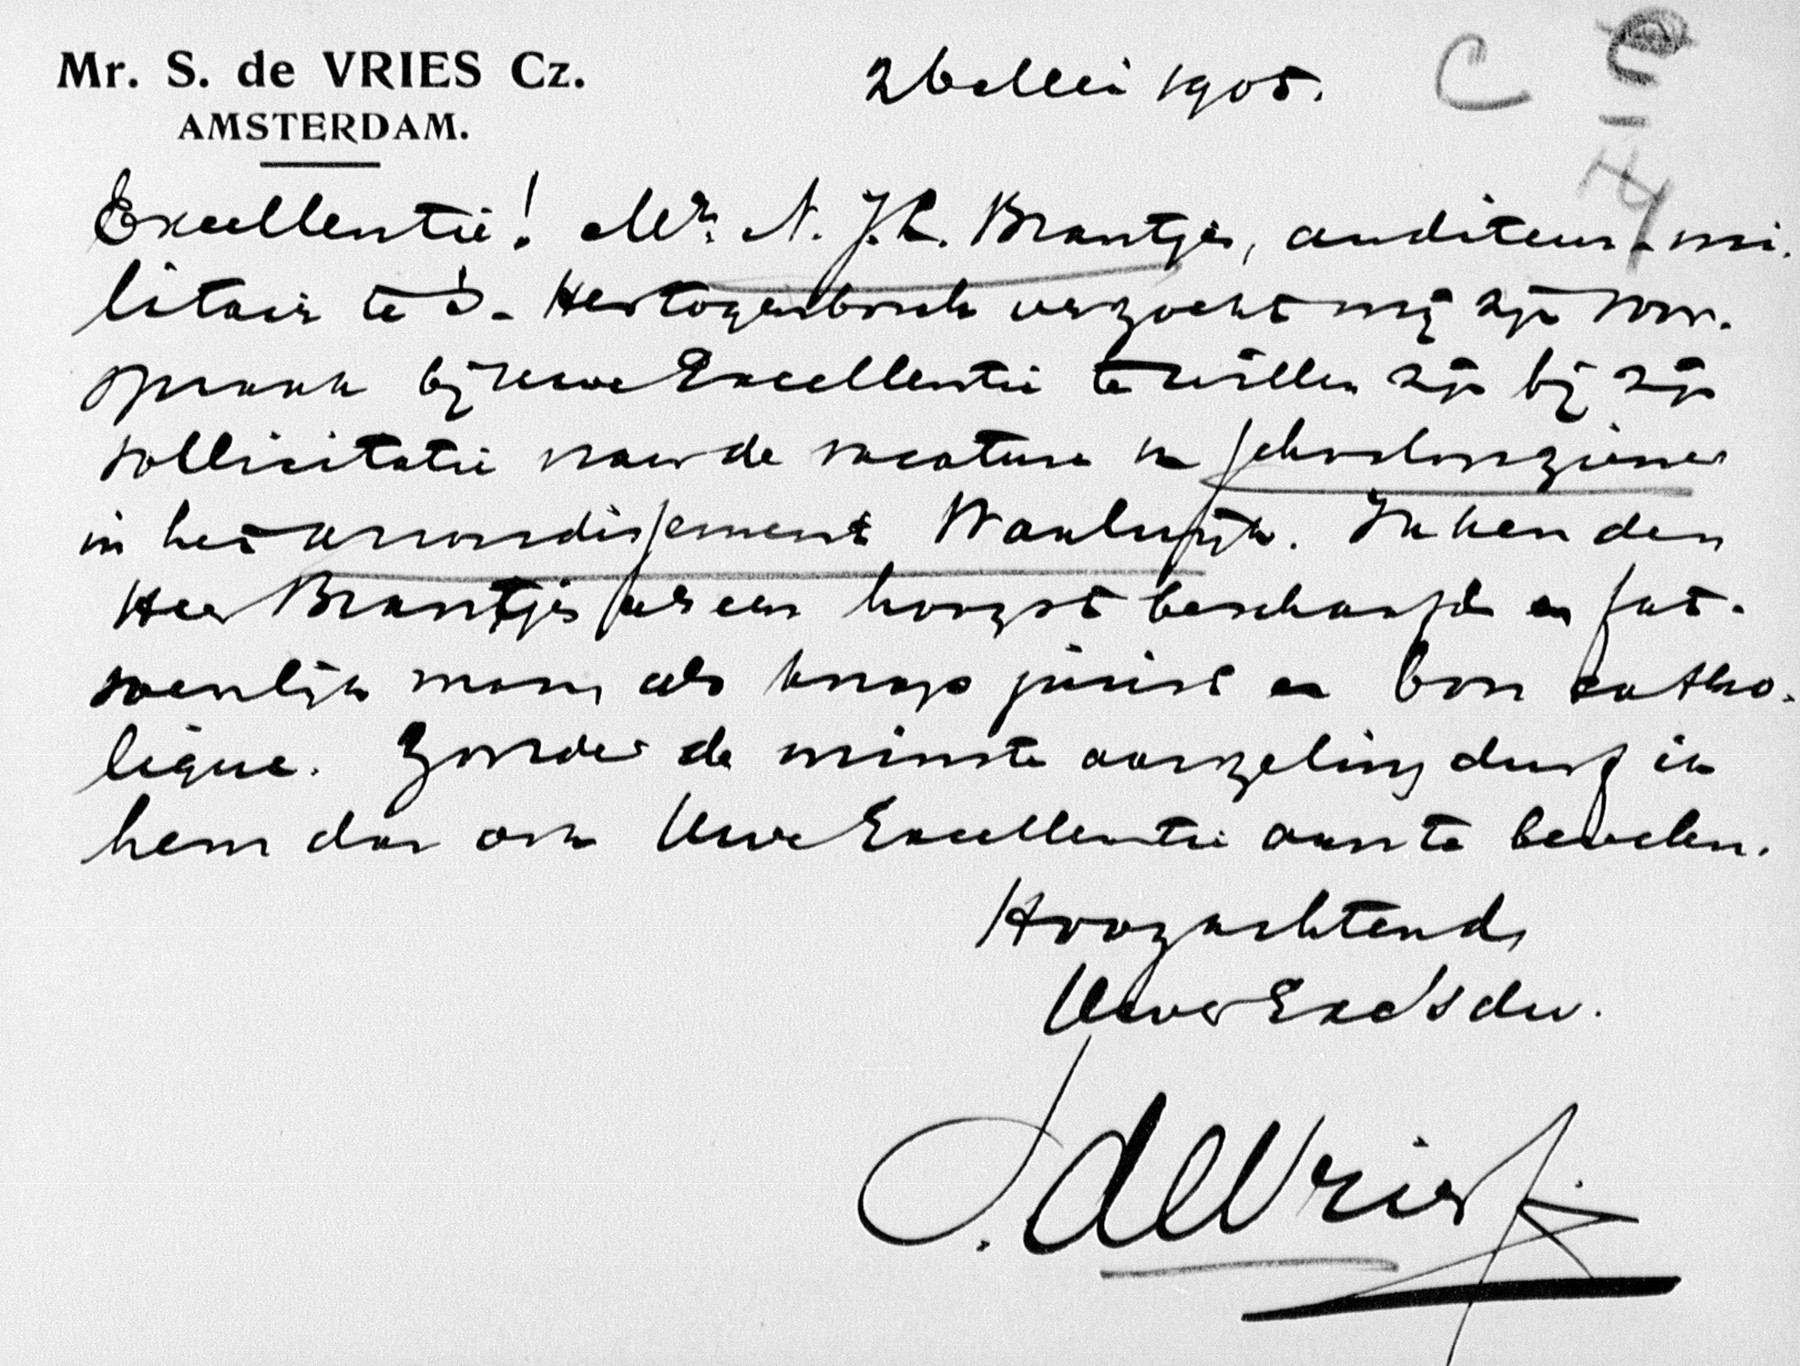 Mr. S. de VRIES Cz.
AMSTERDAM.
26 Mei 1905.
C
Excellentie! Mr. N. J. C. Brantjes, auditeur-mi-
litair te 's-Hertogenbosch verzocht mij zijn voor-
spraak bij Uwe Excellentie te willen zijn bij zijn
sollicitatie naar de vacature v. schoolopziener
in het arrondissement Waalwijk. Ik ken den
Heer Brantjes als een hoogst beschaafd en fat-
soenlijk man, als knap jurist en bon catho-
lique. Zonder de minste aarzeling durf ik
hem dan ook Uwe Excellentie aan te bevelen.
Hoogachtend,
Uwer Exc's dw.
S. de Vries Cz.